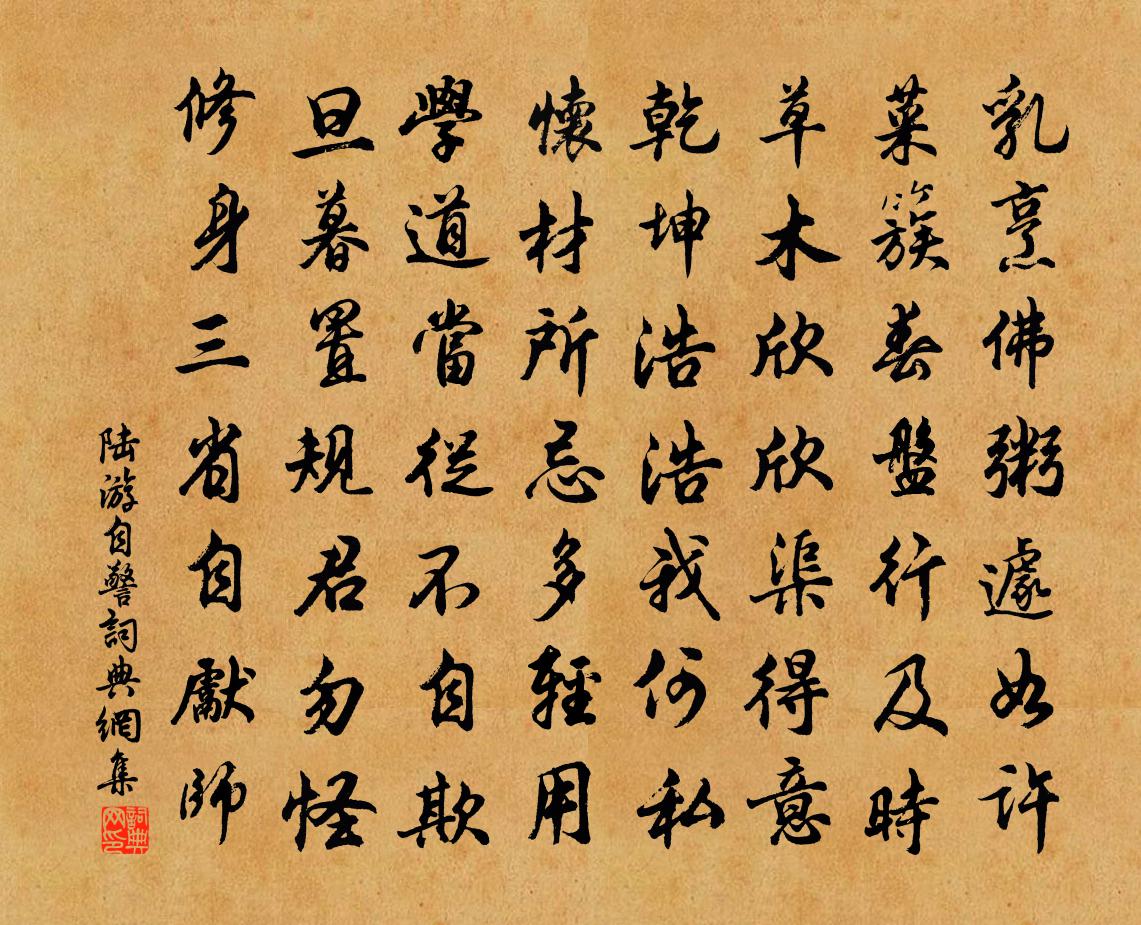 乳烹佛粥遽如許
菜簇春盤行及時
草木欣欣渠得意
乾坤浩浩我何私
懷材所忌多輕用
學道當從不自欺
旦暮置規君勿怪
修身三省自獻師
陆游自警詞典網集
詞典网印